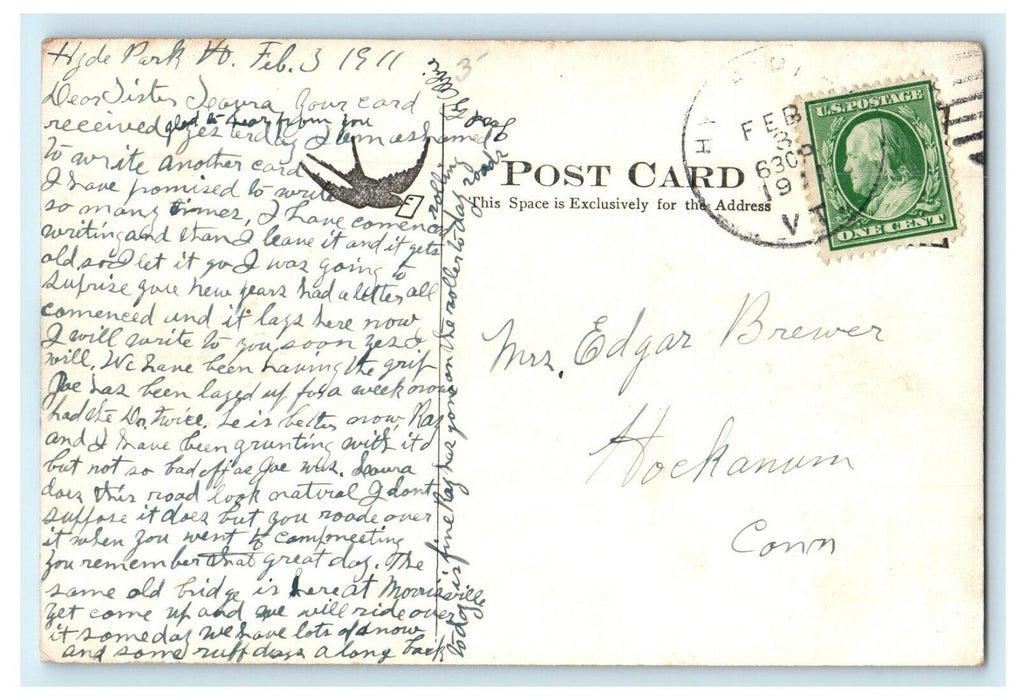 Hyde Park Vt. Feb. 3 1911
Dear Sister Leavra Your card
received yesterday I am ashamed
glad to hear from you
to write another card
I have promised to write
so many times, I have comenced
writing and than I leave it and it gets
old, so I let it go I was going to
suprise you new years had a letter all
comenced and it lays here now
I will write to you soon yes I
will. We have been having the grip
Joe has been layed up for a week now
had the Dr. twice. he is better now, Ray
and I have been grunting with it
but not so bad off as Joe was. Leavra
does this road look natural I dont
suppose it does but you roade over
it when you went to campmeeting
you remember that great day. The
same old bridge is here at Morrisville
yet come up and we will ride over
it someday we have lots of snow
and some ruff days along back
today is fine Ray has gone on the roller to day
rolling roads
3
POST CARD
This Space is Exclusively for the Address
FEB
3
630P
1911
VT
U.S. POSTAGE
ONE CENT
Mrs. Edgar Brewer
Hockanum
Conn